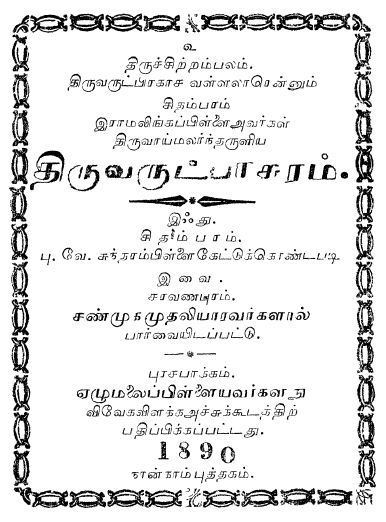 உ
திருச்சிற்றம்பலம்.
திருவருட்பிரகாச வள்ளலாரென்னும்
சிதம்பரம்
இராமலிங்கப்பிள்ளை அவர்கள்
திருவாய்மலர்ந்தருளிய
திருவருட்பாசுரம்.
இஃது.
சிதம்பரம்.
பு. வே. சுந்தரம்பிள்ளை கேட்டுக்கொண்டபடி
இவை.
சரவணபுரம்.
சண்முகமுதலியாரவர்களால்
பார்வையிடப்பட்டு.
புரசபாக்கம்.
ஏழுமலைப்பிள்ளையவர்களது
விவேகவிளக்க அச்சுக்கூடத்திற்
பதிப்பிக்கப்பட்டது.
1890
நான்காம்புத்தகம்.